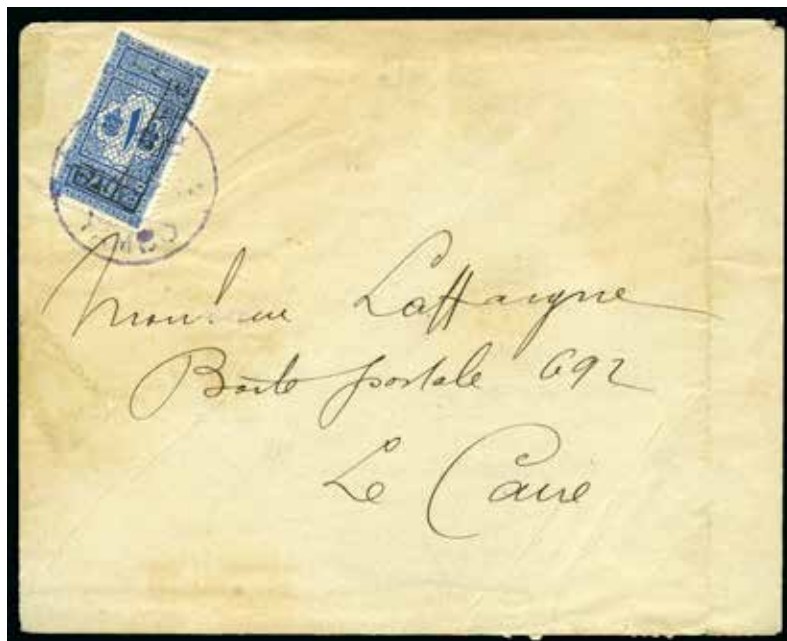 Monsieur Laffargue
Boite postale 692
Le Caire